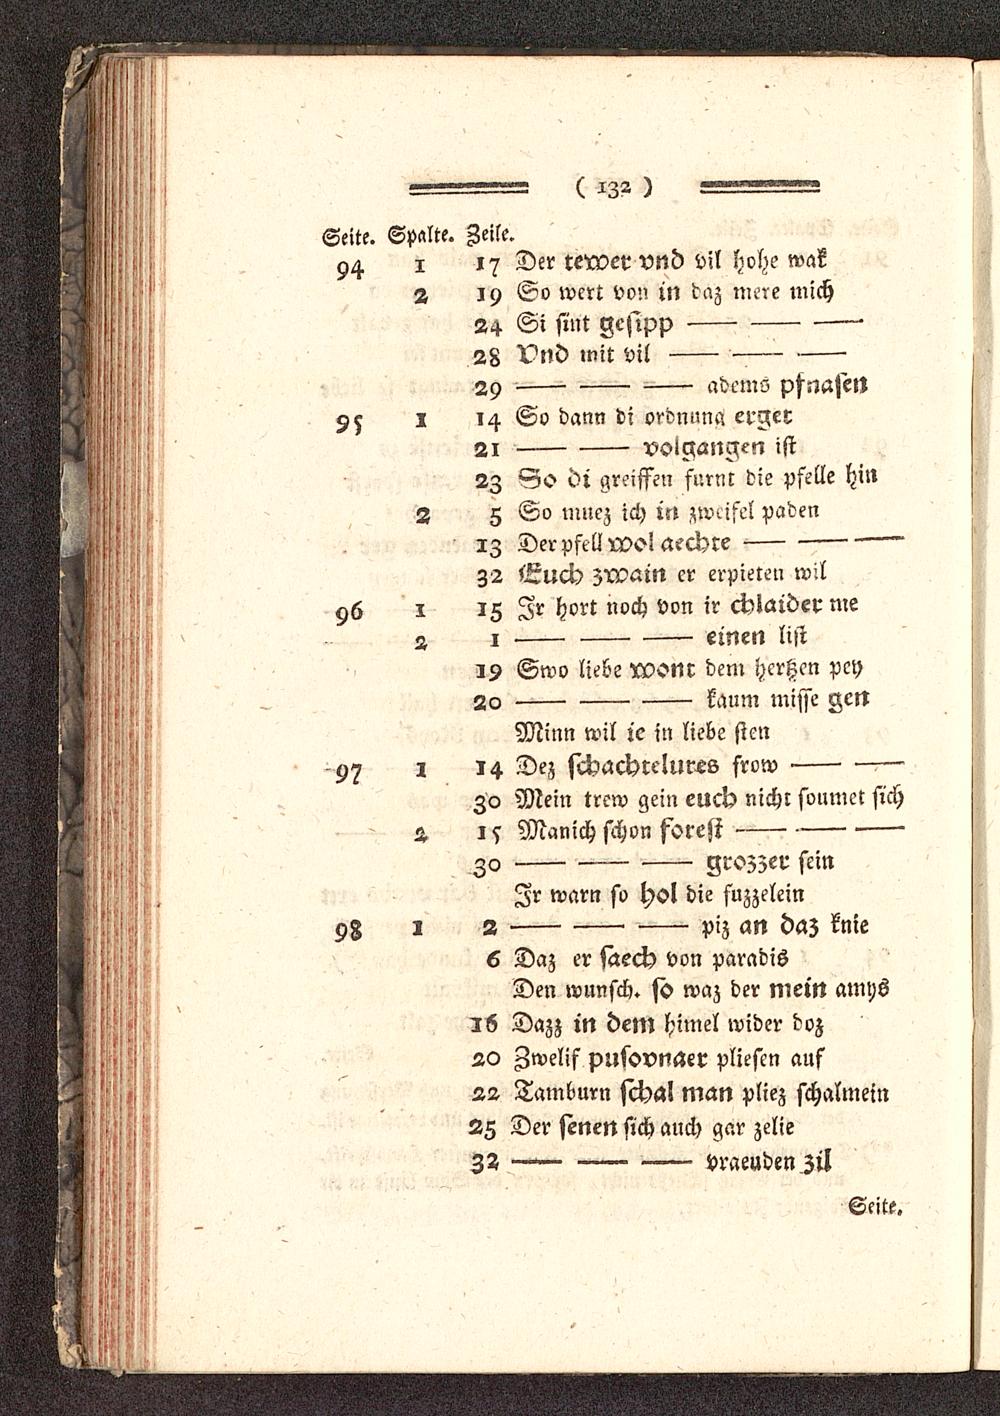 ( 132 )
Seite. Spalte. Zeile.
94 1 17 Der tewer vnd vil hohe wak
2 19 So wert von in daz mere mich
24 Si sint gesipp — — —
28 Vnd mit vil — — —
29 — — — adems pfnasen
95 1 14 So dann di ordnung erget
21 — — volgangen ist
23 So di greiffen furnt die pfelle hin
2 5 So muez ich in zweifel paden
13 Der pfell wol aechte — — —
32 Euch zwain er erpieten wil
96 1 15 Ir hort noch von ir chlaider me
2 1 — — — einen list
19 Swo liebe wont dem hertzen pey
20 — — — kaum misse gen
Minn wil ie in liebe sten
97 1 14 Dez schachtelures frow — —
30 Mein trew gein euch nicht soumet sich
2 15 Manich schon forest — — —
30 — — — grozzer sein
Ir warn so hol die fuzzelein
98 1 2 — — — piz an daz knie
6 Daz er saech von paradis
Den wunsch. so waz der mein amys
16 Dazz in dem himel wider doz
20 Zwelif pusovnaer pliesen auf
22 Tamburn schal man pliez schalmein
25 Der senen sich auch gar zelie
32 — — — vraeuden zil
Seite.